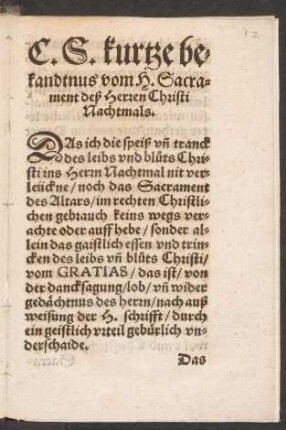 12
C. S. kurtze be⸗
kandtnus vom H. Sacra⸗
ment deß Herren Christi
Nachtmals.
DAs ich die speiß vñ tranck
des leibs vnd blůts Chri⸗
sti ins Herrn Nachtmal nit ver⸗
leückne/ noch das Sacrament
des Altars/ im rechten Christli⸗
chen gebrauch keins wegs ver⸗
achte oder auff hebe/ sonder al⸗
lein das gaistlich essen vnd trin⸗
cken des leibs vñ blůts Christi/
vom GRATIAS/ das ist/ von
der dancksagung/ lob/ vñ wider
gedächtnus des herrn/ nach auß
weisung der H. schrifft/ durch
ein geistlich vrteil gebürlich vn⸗
derschaide.
Das